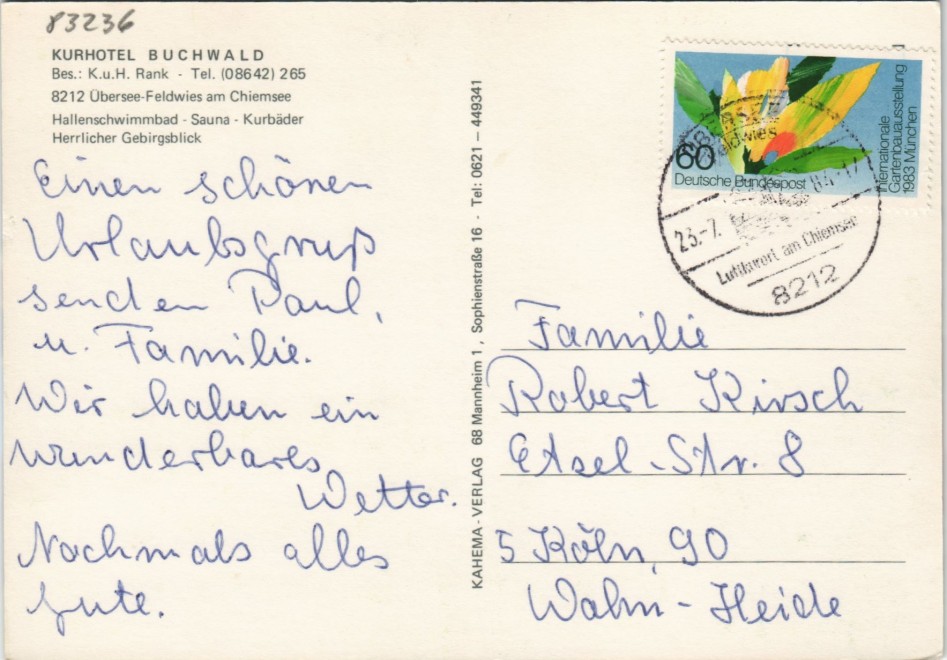 83236
KURHOTEL BUCHWALD
Bes.: K.u.H. Rank - Tel. (08642) 265
8212 Übersee-Feldwies am Chiemsee
Hallenschwimmbad - Sauna - Kurbäder
Herrlicher Gebirgsblick
Einen schönen
Urlaubsgruß
senden Paul,
u. Familie.
Wir haben ein
wunderbares
Wetter.
Nochmals alles
gute.
KAHEMA-VERLAG 68 Mannheim 1, Sophienstraße 16 - Tel: 0621 – 449341
60
Deutsche Bundespost
Internationale
Gartenbauausstellung
1983 München
Feldwies
23.-7.
Luftkurort am Chiemsee
8212
Familie
Robert Kirsch
Etzel-Str. 8
5 Köln, 90
Wahn-Heide